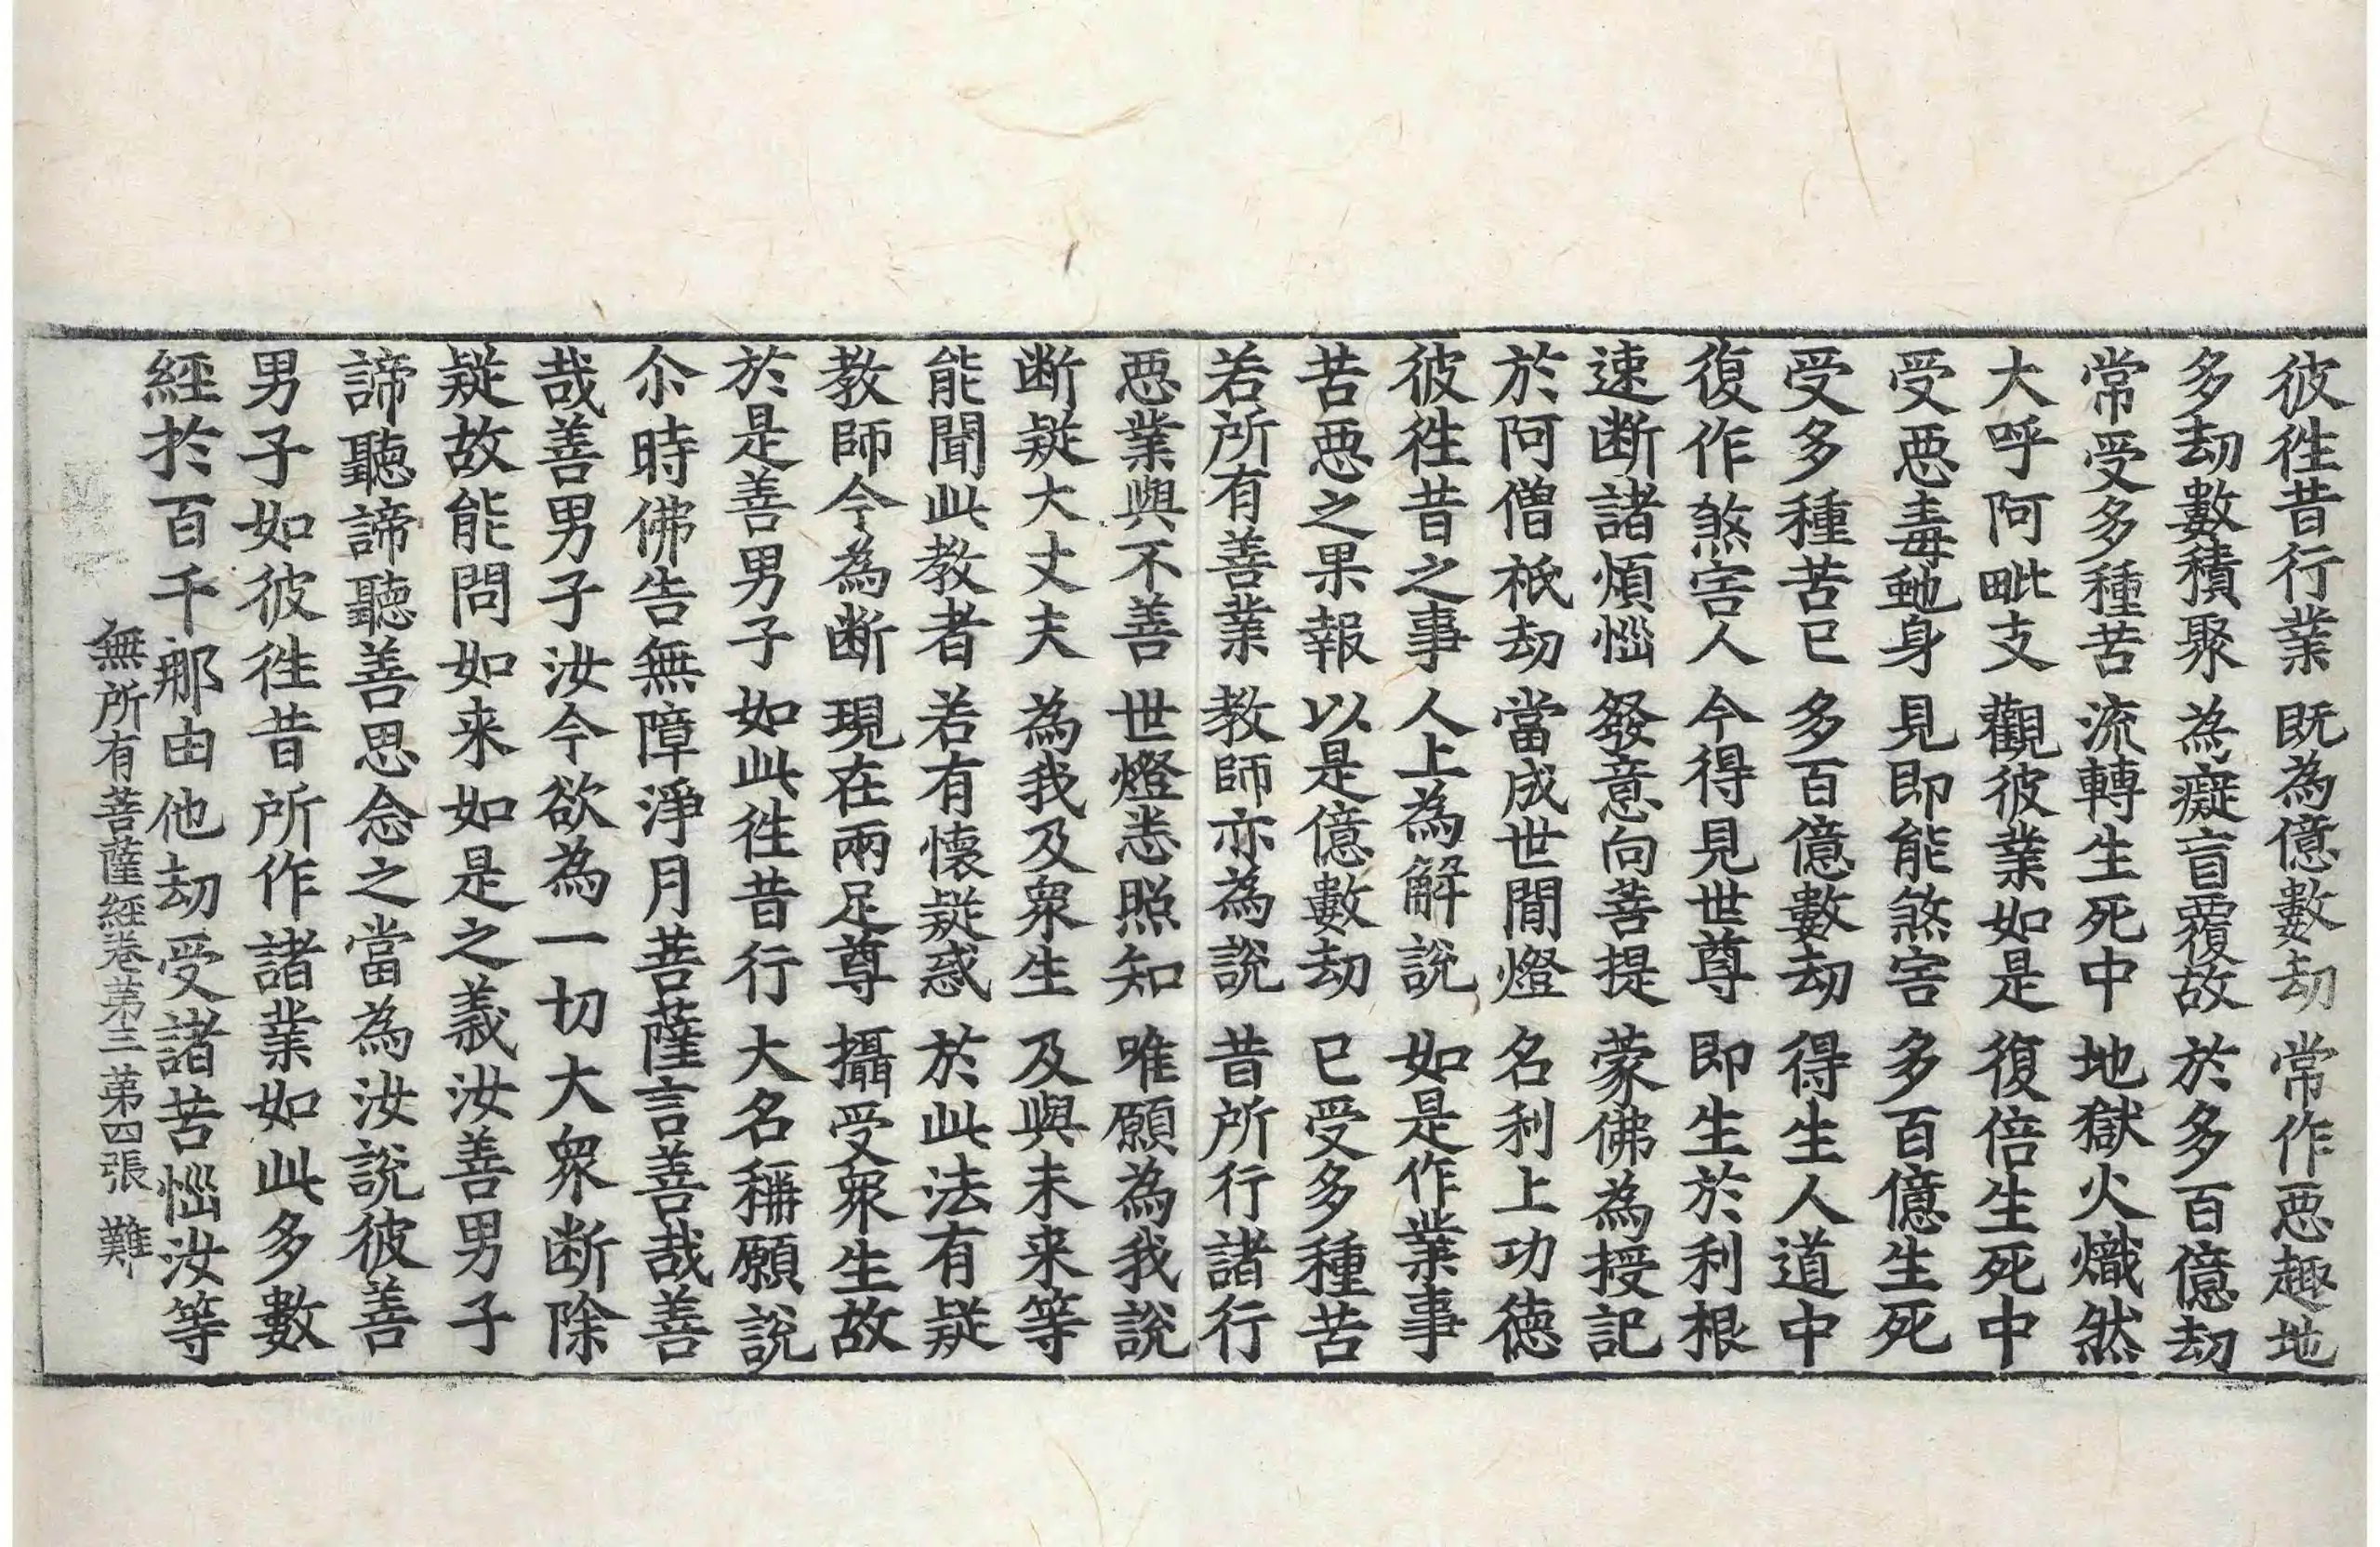 彼徃昔行業　既為億數劫　常作惡趣地
多劫數積聚　為癡盲覆故　於多百億劫
常受多種苦　流轉生死中　地獄火熾然
大呼阿毗支　觀彼業如是　復倍生死中
受惡毒虵身　見即能煞害　多百億生死
受多種苦已　多百億數劫　得生人道中
復作煞害人　今得見世尊　即生於利根
速断諸煩惱　發意向菩提　蒙佛為授記
於阿僧祇劫　當成世間燈　名利上功徳
彼徃昔之事　人上為解說　如是作業事
苦惡之果報　以是億數劫　已受多種苦
若所有善業　教師亦為說　昔所行諸行
惡業與不善　世燈悉照知　唯願為我說
断疑大丈夫　為我及衆生　及與未来等
能聞此教者　若有懷疑惑　於此法有疑
教師今為断　現在兩足尊　攝受衆生故
於是善男子　如此徃昔行　大名稱願說
尒時佛告無障淨月菩薩言善哉善
哉善男子汝今欲為一切大衆断除
疑故能問如来如是之義汝善男子
諦聽諦聽善思念之當為汝說彼善
男子如彼徃昔所作諸業如此多數
經於百千那由他劫受諸苦惱汝等
無所有菩薩經卷第三　第四張　難